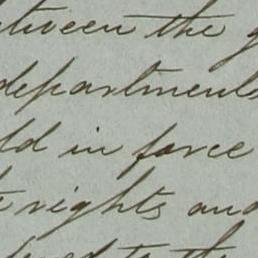 between the g
departments
ld in force
rights and
to the